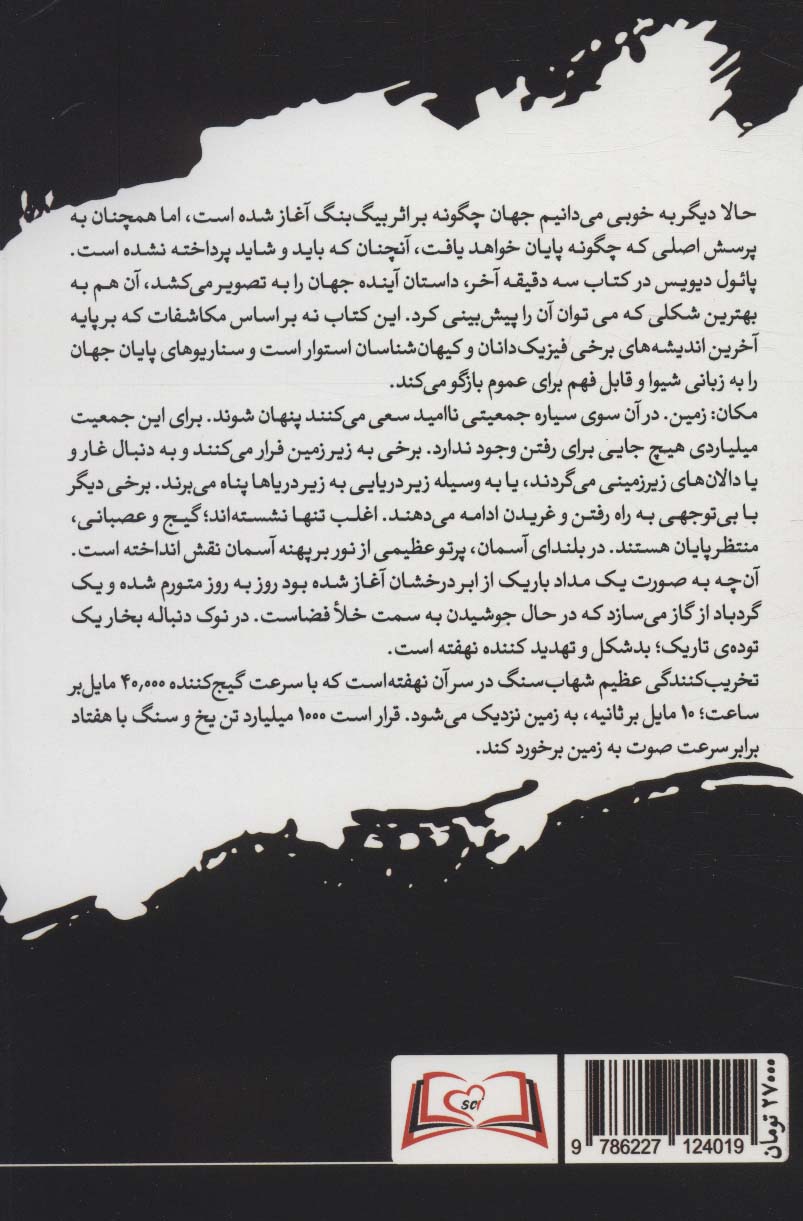 حالا دیگر به خوبی می‌دانیم جهان چگونه بر اثر بیگ‌بنگ آغاز شده است، اما همچنان به
پرسش اصلی که چگونه پایان خواهد یافت، آنچنان که باید و شاید پرداخته نشده است.
پائول دیویس در کتاب سه دقیقه آخر، داستان آینده جهان را به تصویر می‌کشد، آن هم به
بهترین شکلی که می توان آن را پیش‌بینی کرد. این کتاب نه بر اساس مکاشفات که بر پایه
آخرین اندیشه‌های برخی فیزیک‌دانان و کیهان‌شناسان استوار است و سناریوهای پایان جهان
را به زبانی شیوا و قابل فهم برای عموم بازگو می‌کند.
مکان: زمین. در آن سوی سیاره جمعیتی ناامید سعی می‌کنند پنهان شوند. برای این جمعیت
میلیاردی هیچ جایی برای رفتن وجود ندارد. برخی به زیر زمین فرار می‌کنند و به دنبال غار و
یا دالان‌های زیرزمینی می‌گردند، یا به وسیله زیردریایی به زیر دریاها پناه می‌برند. برخی دیگر
با بی‌توجهی به راه رفتن و غریدن ادامه می‌دهند. اغلب تنها نشسته‌اند؛ گیج و عصبانی،
منتظر پایان هستند. در بلندای آسمان، پرتو عظیمی از نور بر پهنه آسمان نقش انداخته است.
آن‌چه به صورت یک مداد باریک از ابر درخشان آغاز شده بود روز به روز متورم شده و یک
گردباد از گاز می‌سازد که در حال جوشیدن به سمت خلأ فضاست. در نوک دنباله بخار یک
توده‌ی تاریک؛ بدشکل و تهدید کننده نهفته است.
تخریب‌کنندگی عظیم شهاب‌سنگ در سر آن نهفته‌است که با سرعت گیج‌کننده ۴۰,۰۰۰ مایل بر
ساعت؛ ۱۰ مایل بر ثانیه، به زمین نزدیک می‌شود. قرار است ۱۰۰۰ میلیارد تن یخ و سنگ با هفتاد
برابر سرعت صوت به زمین برخورد کند.
sci
9 786227 124019
۲۷۰۰۰ تومان